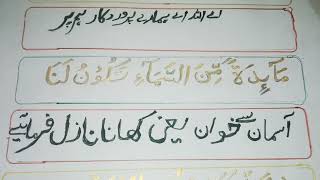 اے اللہ اے ہمارے پروردگار ہم پر
مَآئِدَةً مِّنَ السَّمَآءِ تَكُوْنُ لَنَا
آسمان سے خوان یعنی کھانا نازل فرمائیے